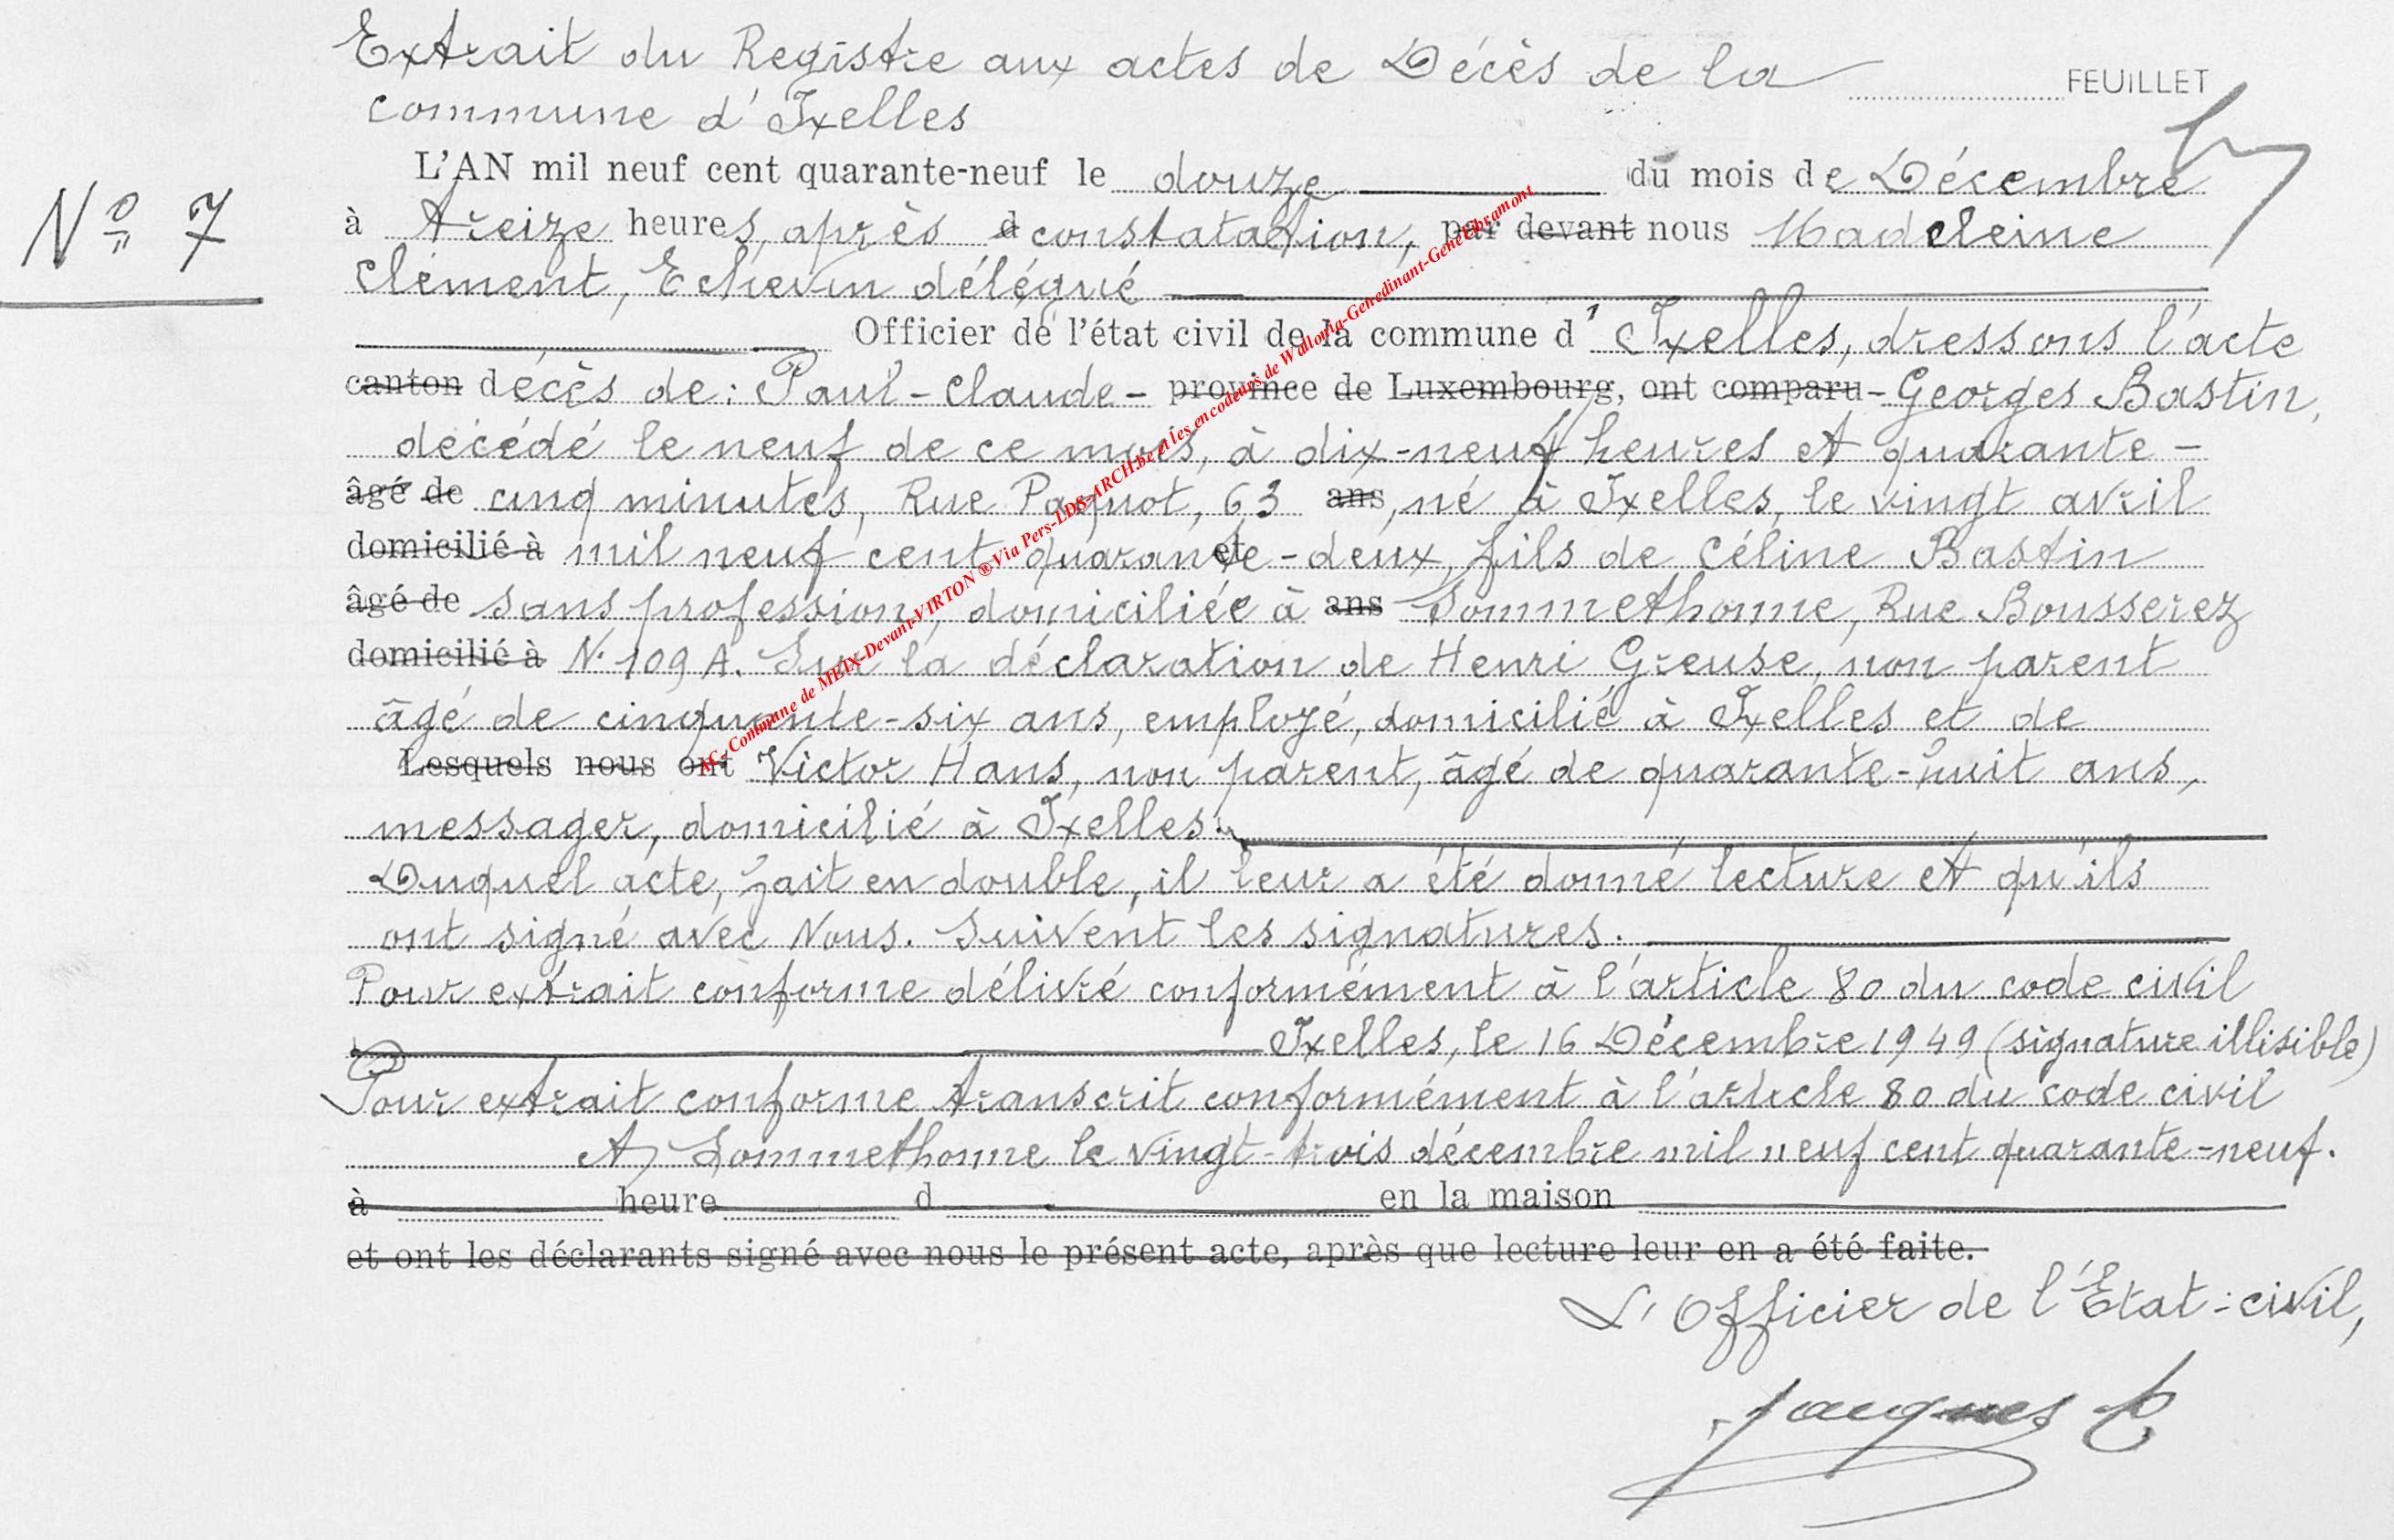 Extrait du Registre aux actes de Décès de la FEUILLET
commune d'Ixelles
L'AN mil neuf cent quarante-neuf le douze du mois de Décembre
N° 7
à treize heures, après d constatation, par devant nous Madeleine
Clément, Echevin délégué
Officier de l'état civil de la commune d'Ixelles, dressons l'acte
canton décès de : Paul-Claude- province de Luxembourg, ont comparu - Georges Bastin,
décédé le neuf de ce mois, à dix-neuf heures et quarante-
âgé de cinq minutes, Rue Paquot, 63 ans, né à Ixelles, le vingt avril
domicilié à mil neuf cent quarante et-deux, fils de Céline Bastin
âgé de sans profession, domiciliée à ans Sommethonne, Rue Bousserez
domicilié à N. 109 A. Sur la déclaration de Henri Greuse, non parent
âgé de cinquante-six ans, employé, domicilié à Ixelles et de
Lesquels nous ont Victor Hans, non parent, âgé de quarante-huit ans,
messager, domicilié à Ixelles.
Duquel acte, fait en double, il leur a été donné lecture et qu'ils
ont signé avec Nous. Suivent les signatures.
Pour extrait conforme délivré conformément à l'article 80 du code civil
Ixelles, le 16 Décembre 1949 (signature illisible)
Pour extrait conforme transcrit conformément à l'article 80 du code civil
A Sommethonne le vingt-trois décembre mil neuf cent quarante-neuf.
à heure d en la maison
et ont les déclarants signé avec nous le présent acte, après que lecture leur en a été faite.
L'Officier de l'Etat-civil,
Jacques
AC- Commune de MEIX-Devant-VIRTON ® Via Pers-LDS-ARCH.be et les encodeurs de Wallonia-Genedinant-Genelibramont